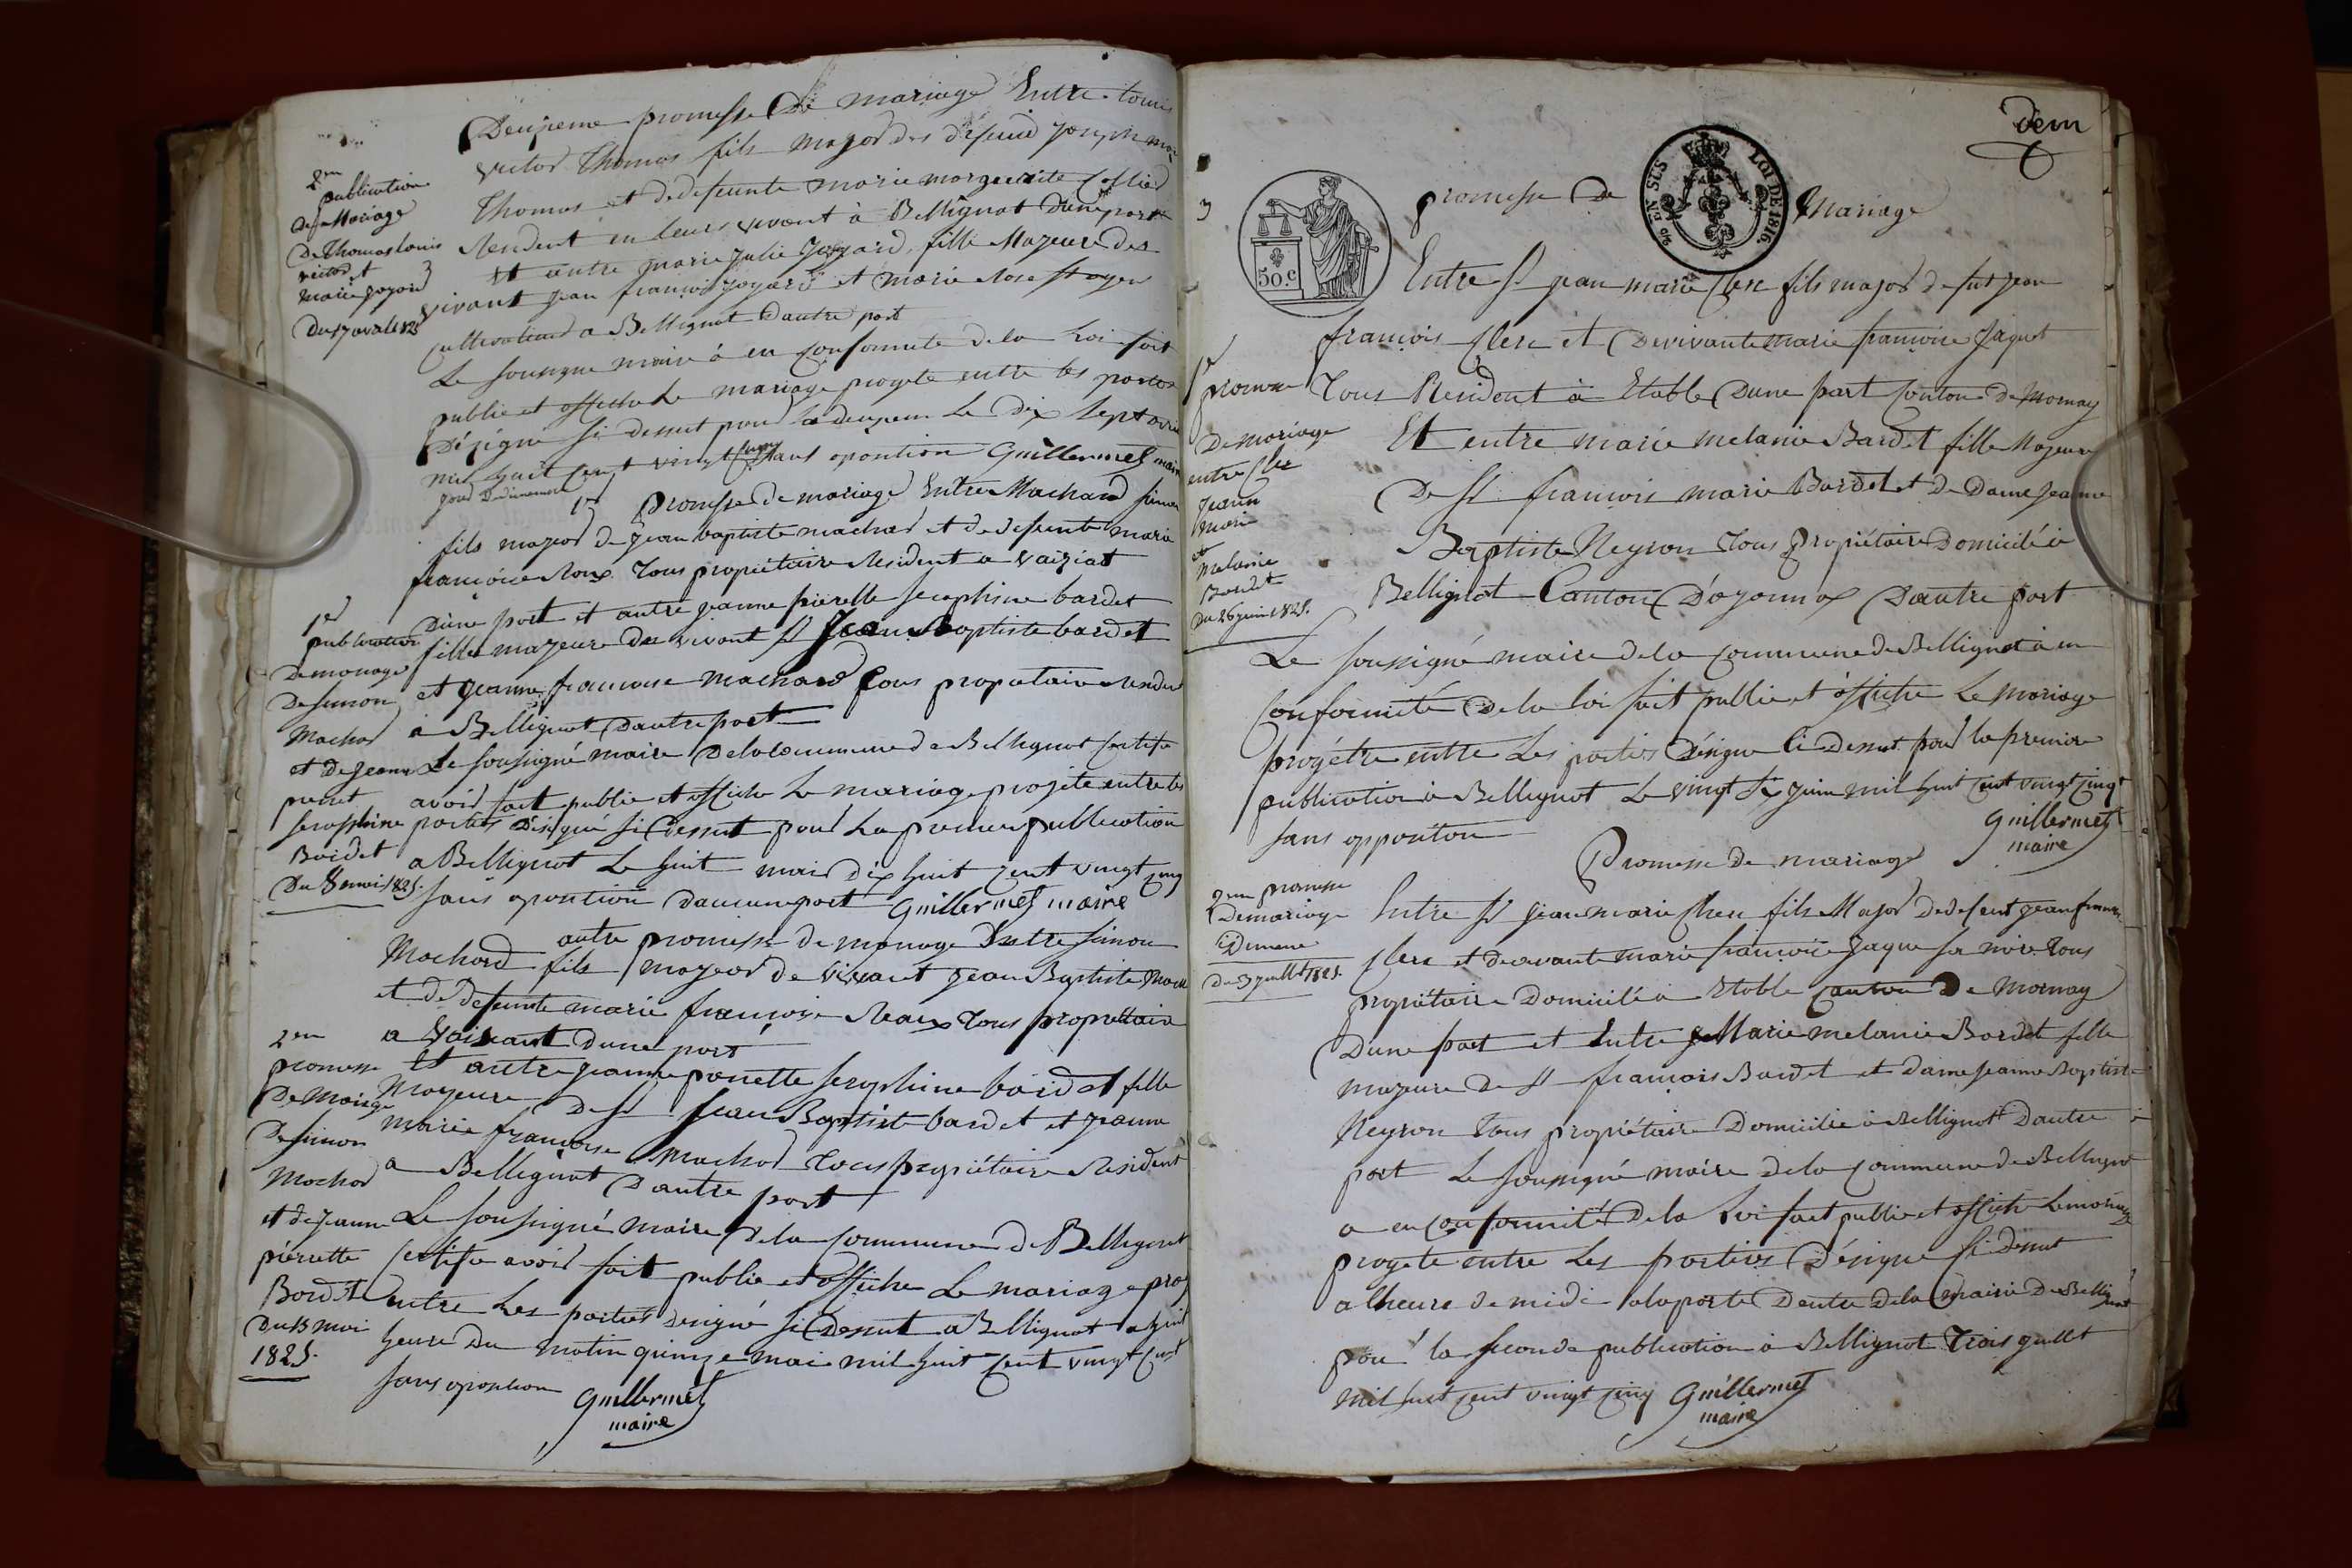 Deuxieme promesse De mariage Entre Louis
victor Thomas fils major des defund Joseph
Thomas et dedefeunte marie margueritte
Resident en leurs vivant à Bellignat Dune part
Et autre marie Julie Joyard fille Majeure des
vivant Jean françois Joyard et marie Rose
Cultivateurs a Bellignat Dautre part
Le sousigne maire à en Conformite dela Loi fait
publie et affiche Le mariage progete entre les parties
Désigne si dessut pour la deuxiem Le Dix Sept avril
mil huit Cent vingt cinq sans opoution Guillermet maire
2em
publication
De Mariage
De Thomas Louis
victor et
marie Joyard
Du 17 avril 1825
1er promesse de mariage Entre Machard Simon
fils majeur de Jean baptiste machard et de defeunte marie
françoise Roux Tous propriétaire Resident a vaiziat
Dune part et autre Jeanne pierette Seraphine bardet
fille mazeure des vivant Sr Jean Baptiste bardet
et Jeanne francoise Machard Tous propietaire
à Bellignat Dautre part
Le sousigné maire Dela Commune de Bellignat Certife
avoir fait publie et affiche Le mariage projete entre les
parties Désigné si dessut pour La premier publication
a Bellignat Le huit mai dix huit Cent vingt cinq
sans opoution Daucune part Guillermet maire
1er
publication
De mariage
De Simon
Machard
et de Jeanne
Seraphine
Bardet
Du 8 mai 1825.
autre promesse de mariage Entre Simon
Machard fils majeur de vivant Jean Baptiste
et de defeunte marie françoise Roux Tous propriettaire
a Dune part
Et autre Jeanne pierrette Seraphine bardet fille
Majeure De Sr Jean Baptiste bardet et Jeanne
Marie françoise Machard Tous propriétaire Resident
a Bellignat Dautre part
Le sousigné maire Dela Commune de Bellignat
Certife avoir fait publie et affiche Le mariage
entre Les parties designé si dessut a Bellignat a huit
heure Du matin quinze mai mil huit Cent vingt cinq
sans opoution Guillermet
maire
2em
promesse
De Mariage
De Simon
Machard
et de Jeanne
pierrette
Bardet
Du 15 mai
1825.
Dem
3
50.c
EN SUS
LOI DE 1816.
promesse De Mariage
Entre Sr Jean marie Clerc fils major de fut Jean
françois Clerc et De vivante marie françoise Jaquet
Tous Resident à Etable Dune part Conton De Mornay
Et entre marie melanie Bardet fille Majeure
De Sr francois marie Bardet et De Dame Jeanne
Baptiste Neyron Tous propriétaire Domicilé à
Bellignat Canton D'oyonnax Dautre part
Le sousigné maire dela Commune de Bellignat à en
Conformité Dela loi fait publie et affiche Le Mariage
progétte entre Les parties Désigne Ci dessut pour la premiere
publication à Bellignat Le vingt Six juin mil huit Cent vingt Cinq
sans oppoution
Guillermet
maire
1er
promesse
De mariage
entre Clerc
Jean
Marie
et
Melanie
Bardet
Du 26 juin 1825.
Promesse de mariage
Entre Sr Jean marie Clerc fils Major dedefeut Jean francois
Clerc et de vivante marie françoise Jaque sa mere Tous
propriétaire Domicilé à Etable Canton De Mornay
Dune part et Entre Marie melanie Bardet fille
majeure De Sr françois Bardet et Dame Jeanne Baptiste
Neyron Tous propriétaire Domicilie à Bellignat Dautre
part Le sousigné maire dela Commune de Bellignat
a en Conformité Dela Loi fait publie et affiche Le mariage
progete entre Les parties Désigne Si dessut
a lheure de midi a la porte Dentre dela Mairie De Bellignat
pour la seconde publication à Bellignat Trois
mil huit Cent vingt cinq Guillermet
maire
2em promesse
De mariage
Du 3 juillet 1825.